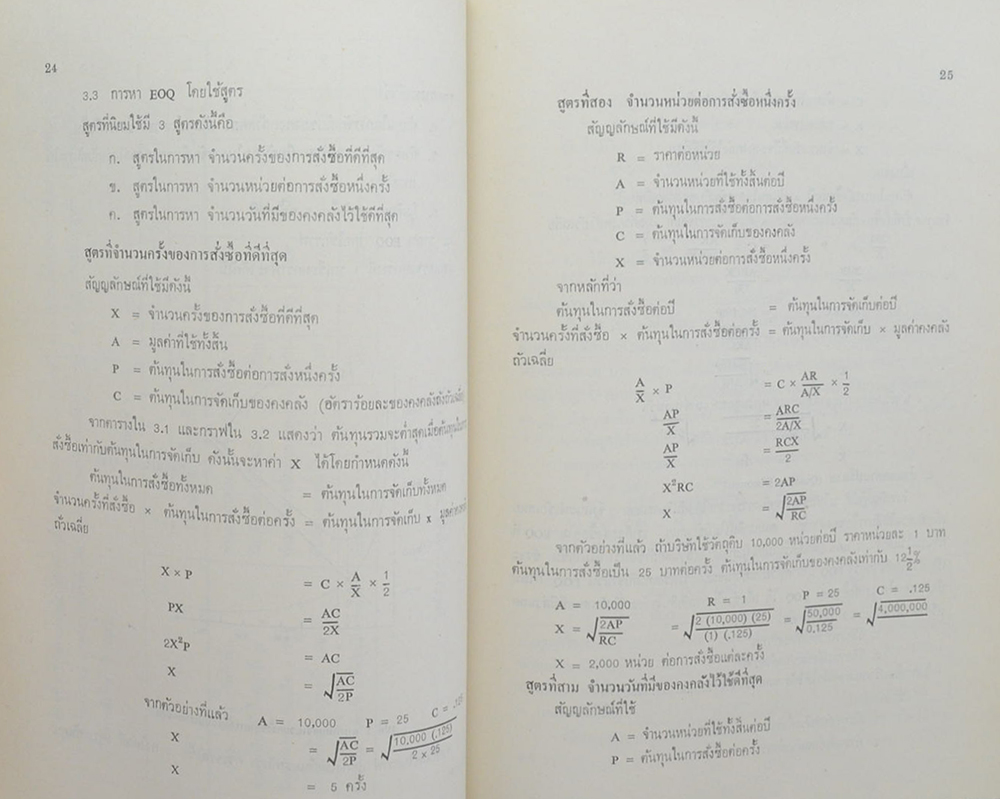 24
3.3 การหา EOQ โดยใช้สูตร
สูตรที่นิยมใช้มี 3 สูตรดังนี้คือ
ก. สูตรในการหา จำนวนครั้งของการสั่งซื้อที่ดีที่สุด
ข. สูตรในการหา จำนวนหน่วยต่อการสั่งซื้อหนึ่งครั้ง
ค. สูตรในการหา จำนวนวันที่มีของคงคลังไว้ใช้ดีที่สุด
สูตรที่จำนวนครั้งของการสั่งซื้อที่ดีที่สุด
สัญญลักษณ์ที่ใช้มีดังนี้
X = จำนวนครั้งของการสั่งซื้อที่ดีที่สุด
A = มูลค่าที่ใช้ทั้งสิ้น
P = ต้นทุนในการสั่งซื้อต่อการสั่งหนึ่งครั้ง
C = ต้นทุนในการจัดเก็บของคงคลัง (อัตราร้อยละของคงคลัง
จากตารางใน 3.1 และกราฟใน 3.2 แสดงว่า ต้นทุนรวมจะต่ำสุดเมื่อต้นทุน
สั่งซื้อเท่ากับต้นทุนในการจัดเก็บ ดังนั้นจะหาค่า X ได้โดยกำหนดดังนี้
ต้นทุนในการสั่งซื้อทั้งหมด = ต้นทุนในการจัดเก็บทั้งหมด
จำนวนครั้งที่สั่งซื้อ × ต้นทุนในการสั่งซื้อต่อครั้ง = ต้นทุนในการจัดเก็บ x มูลค่า
ถัวเฉลี่ย
X × P = C × A/X × 1/2
PX = AC/2X
2X²P = AC
X = √AC/2P
จากตัวอย่างที่แล้ว A = 10,000 P = 25 C = .125
X = √AC/2P = √10,000 (.125)/2 × 25
X = 5 ครั้ง
25
สูตรที่สอง จำนวนหน่วยต่อการสั่งซื้อหนึ่งครั้ง
สัญญลักษณ์ที่ใช้มีดังนี้
R = ราคาต่อหน่วย
A = จำนวนหน่วยที่ใช้ทั้งสิ้นต่อปี
P = ต้นทุนในการสั่งซื้อต่อการสั่งซื้อหนึ่งครั้ง
C = ต้นทุนในการจัดเก็บของคงคลัง
X = จำนวนหน่วยต่อการสั่งซื้อหนึ่งครั้ง
จากหลักที่ว่า
ต้นทุนในการสั่งซื้อต่อปี = ต้นทุนในการจัดเก็บต่อปี
จำนวนครั้งที่สั่งซื้อ × ต้นทุนในการสั่งซื้อต่อครั้ง = ต้นทุนในการจัดเก็บ × มูลค่าคงคลัง
ถัวเฉลี่ย
A/X × P = C × AR/A/X × 1/2
AP/X = ARC/2A/X
AP/X = RCX/2
X²RC = 2AP
X = √2AP/RC
จากตัวอย่างที่แล้ว ถ้าบริษัทใช้วัตถุดิบ 10,000 หน่วยต่อปี ราคาหน่วยละ 1 บาท
ต้นทุนในการสั่งซื้อเป็น 25 บาทต่อครั้ง ต้นทุนในการจัดเก็บของคงคลังเท่ากับ 12½%
A = 10,000 R = 1 P = 25 C = .125
X = √2AP/RC = √2 (10,000) (25)/(1) (.125) = √50,000/0.125 = √4,000,000
X = 2,000 หน่วย ต่อการสั่งซื้อแต่ละครั้ง
สูตรที่สาม จำนวนวันที่มีของคงคลังไว้ใช้ดีที่สุด
สัญญลักษณ์ที่ใช้
A = จำนวนหน่วยที่ใช้ทั้งสิ้นต่อปี
P = ต้นทุนในการสั่งซื้อต่อครั้ง